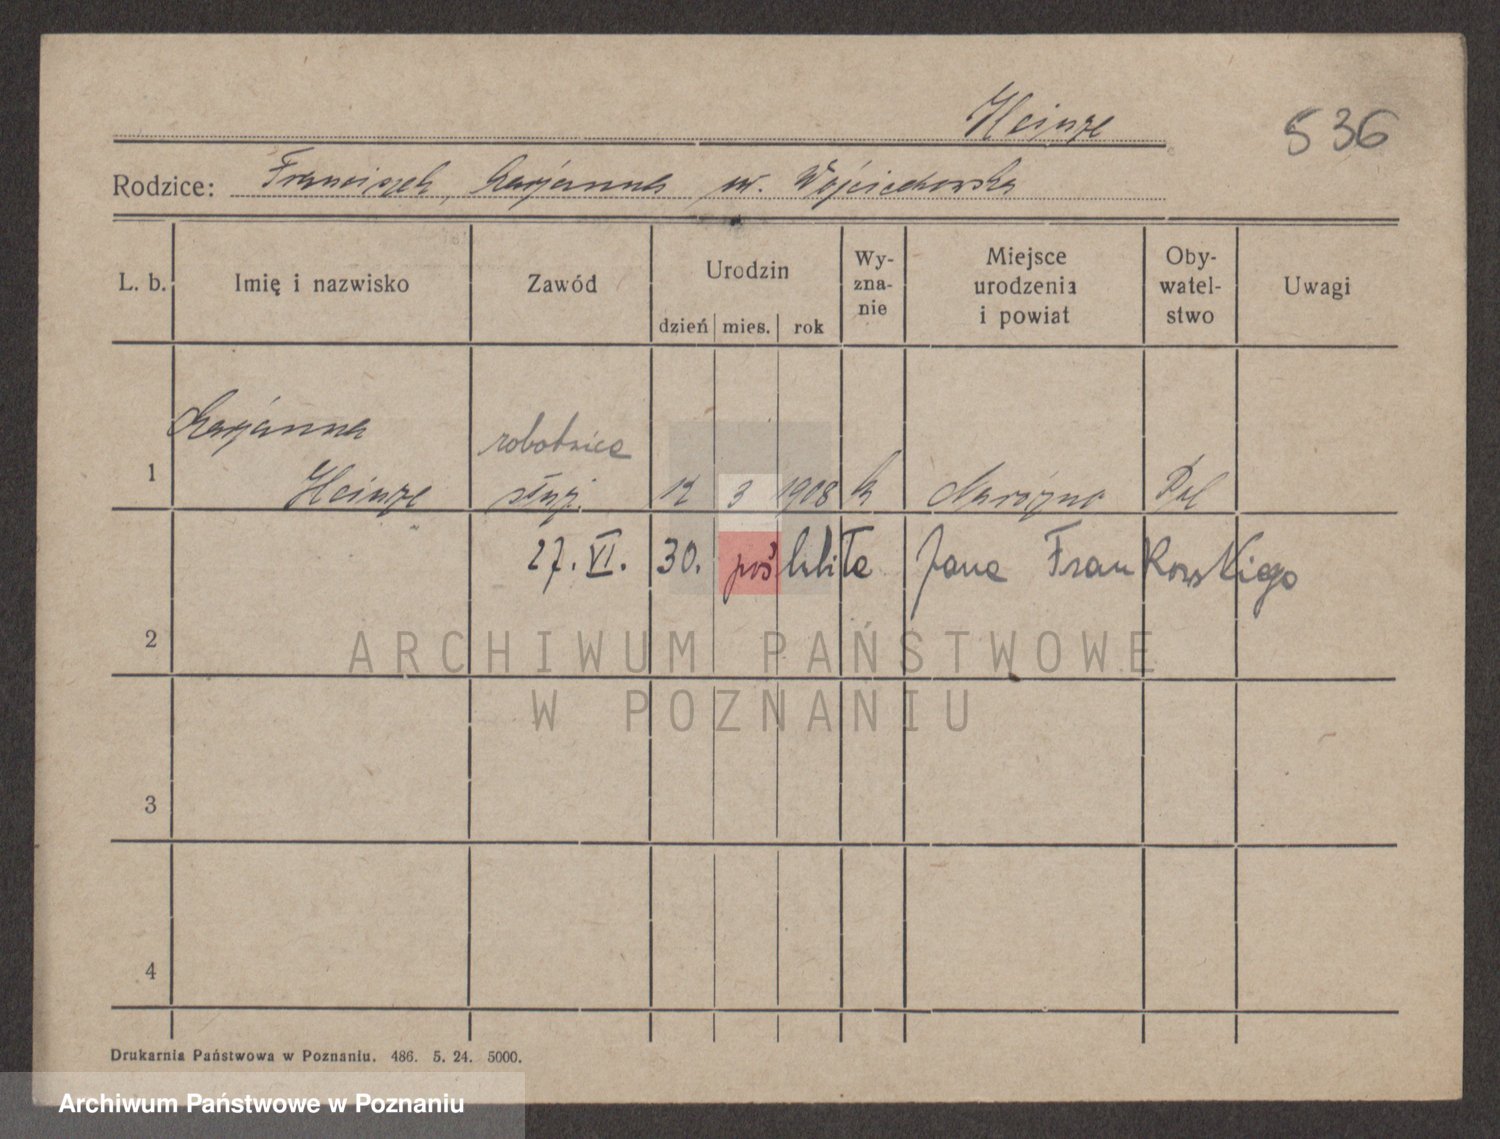 Heinze
536
Rodzice: Franciszek, Marjanna ur. Wojciechowska
L. b. Imię i nazwisko Zawód Urodzin dzień mies. rok Wy-zna-nie Miejsce urodzenia i powiat Oby-watel-stwo Uwagi
Marjanna
robotnica
1 Heinze służ. 12 3 1908 k Pol
27. VI. 30. poślubiła Jana Frankowskiego
2
ARCHIWUM PAŃSTWOWE
W POZNANIU
3
4
Drukarnia Państwowa w Poznaniu. 486. 5. 24. 5000.
Archiwum Państwowe w Poznaniu